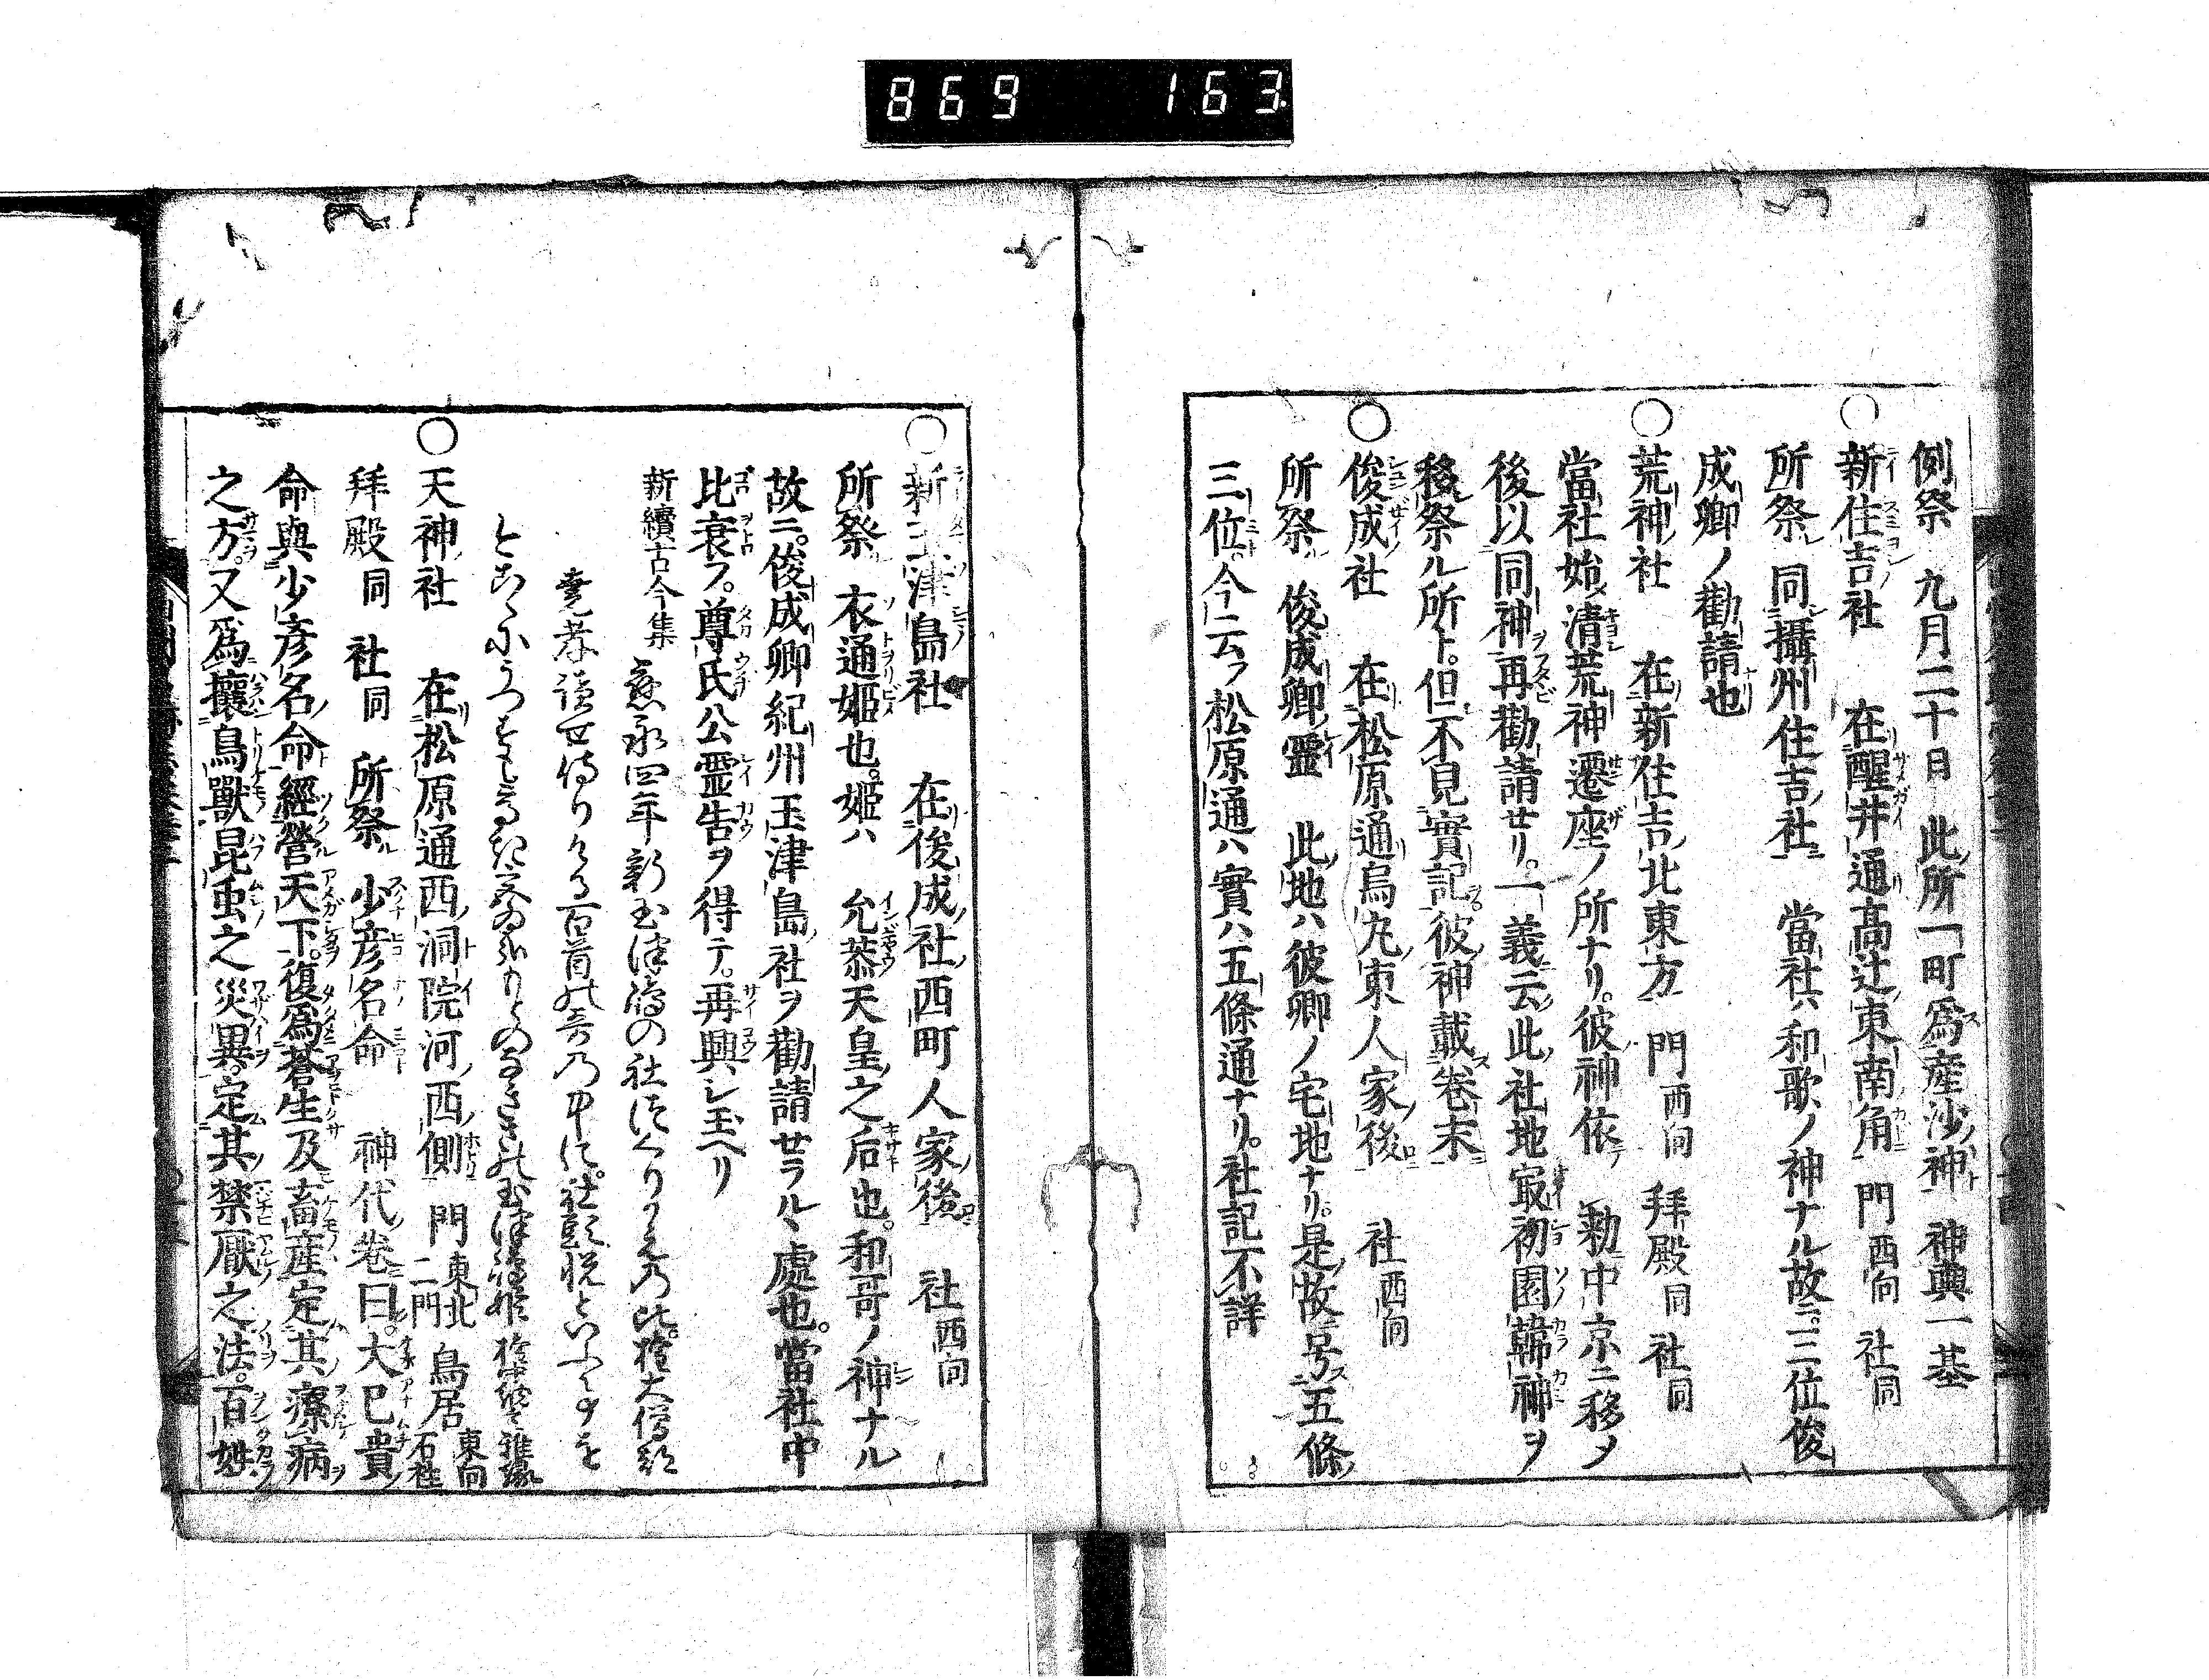 869 163
例祭 九月二十日 此所一町爲産沙神 神輿一基
○新住吉社 在醒井通高辻東南角 門西向 社同
所祭 同攝州住吉社 當社ハ和歌ノ神ナル故ニ三位俊
成卿ノ勸請也
○荒神社 在新住吉北東方 門西向 拜殿同 社同
當社始メ清荒神遷座ノ所ナリ。彼神依テ 勅中京ニ移メ
後以同神再勸請セリ。一義云此社地寂初園韓神ヲ
移祭ル所ト。但不見實記彼神載卷末
○俊成社 在松原通烏丸東人家後 社西向
所祭 俊成卿靈 此地ハ彼卿ノ宅地ナリ。是故号五條
三位。今云フ松原通ハ實ハ五條通ナリ。社記不詳
○新玉津島社 在俊成社西町人家後 社西向
所祭 衣通姬也。姬ハ 允恭天皇之后也。和哥ノ神ナル
故ニ。俊成卿紀州玉津島社ヲ勸請セラルヽ處也。當社中
比衰フ。尊氏公靈告ヲ得テ。再興シ玉ヘリ
新續古今集 應永四年新玉津嶋の社つくりかへの比。權大僧都
堯孝語百侍りける百首の哥の中に。社頭祝といふことを
○天神社 在松原通西洞院河西側 門東北二門 鳥居東向石柱
拜殿同 社同 所祭 少彦名命 神代卷曰。大已貴
命與少彦名命經營天下。復爲蒼生及畜産定其療病
之方。又爲攘鳥獸昆虫之災異。定其禁厭之法。百姓